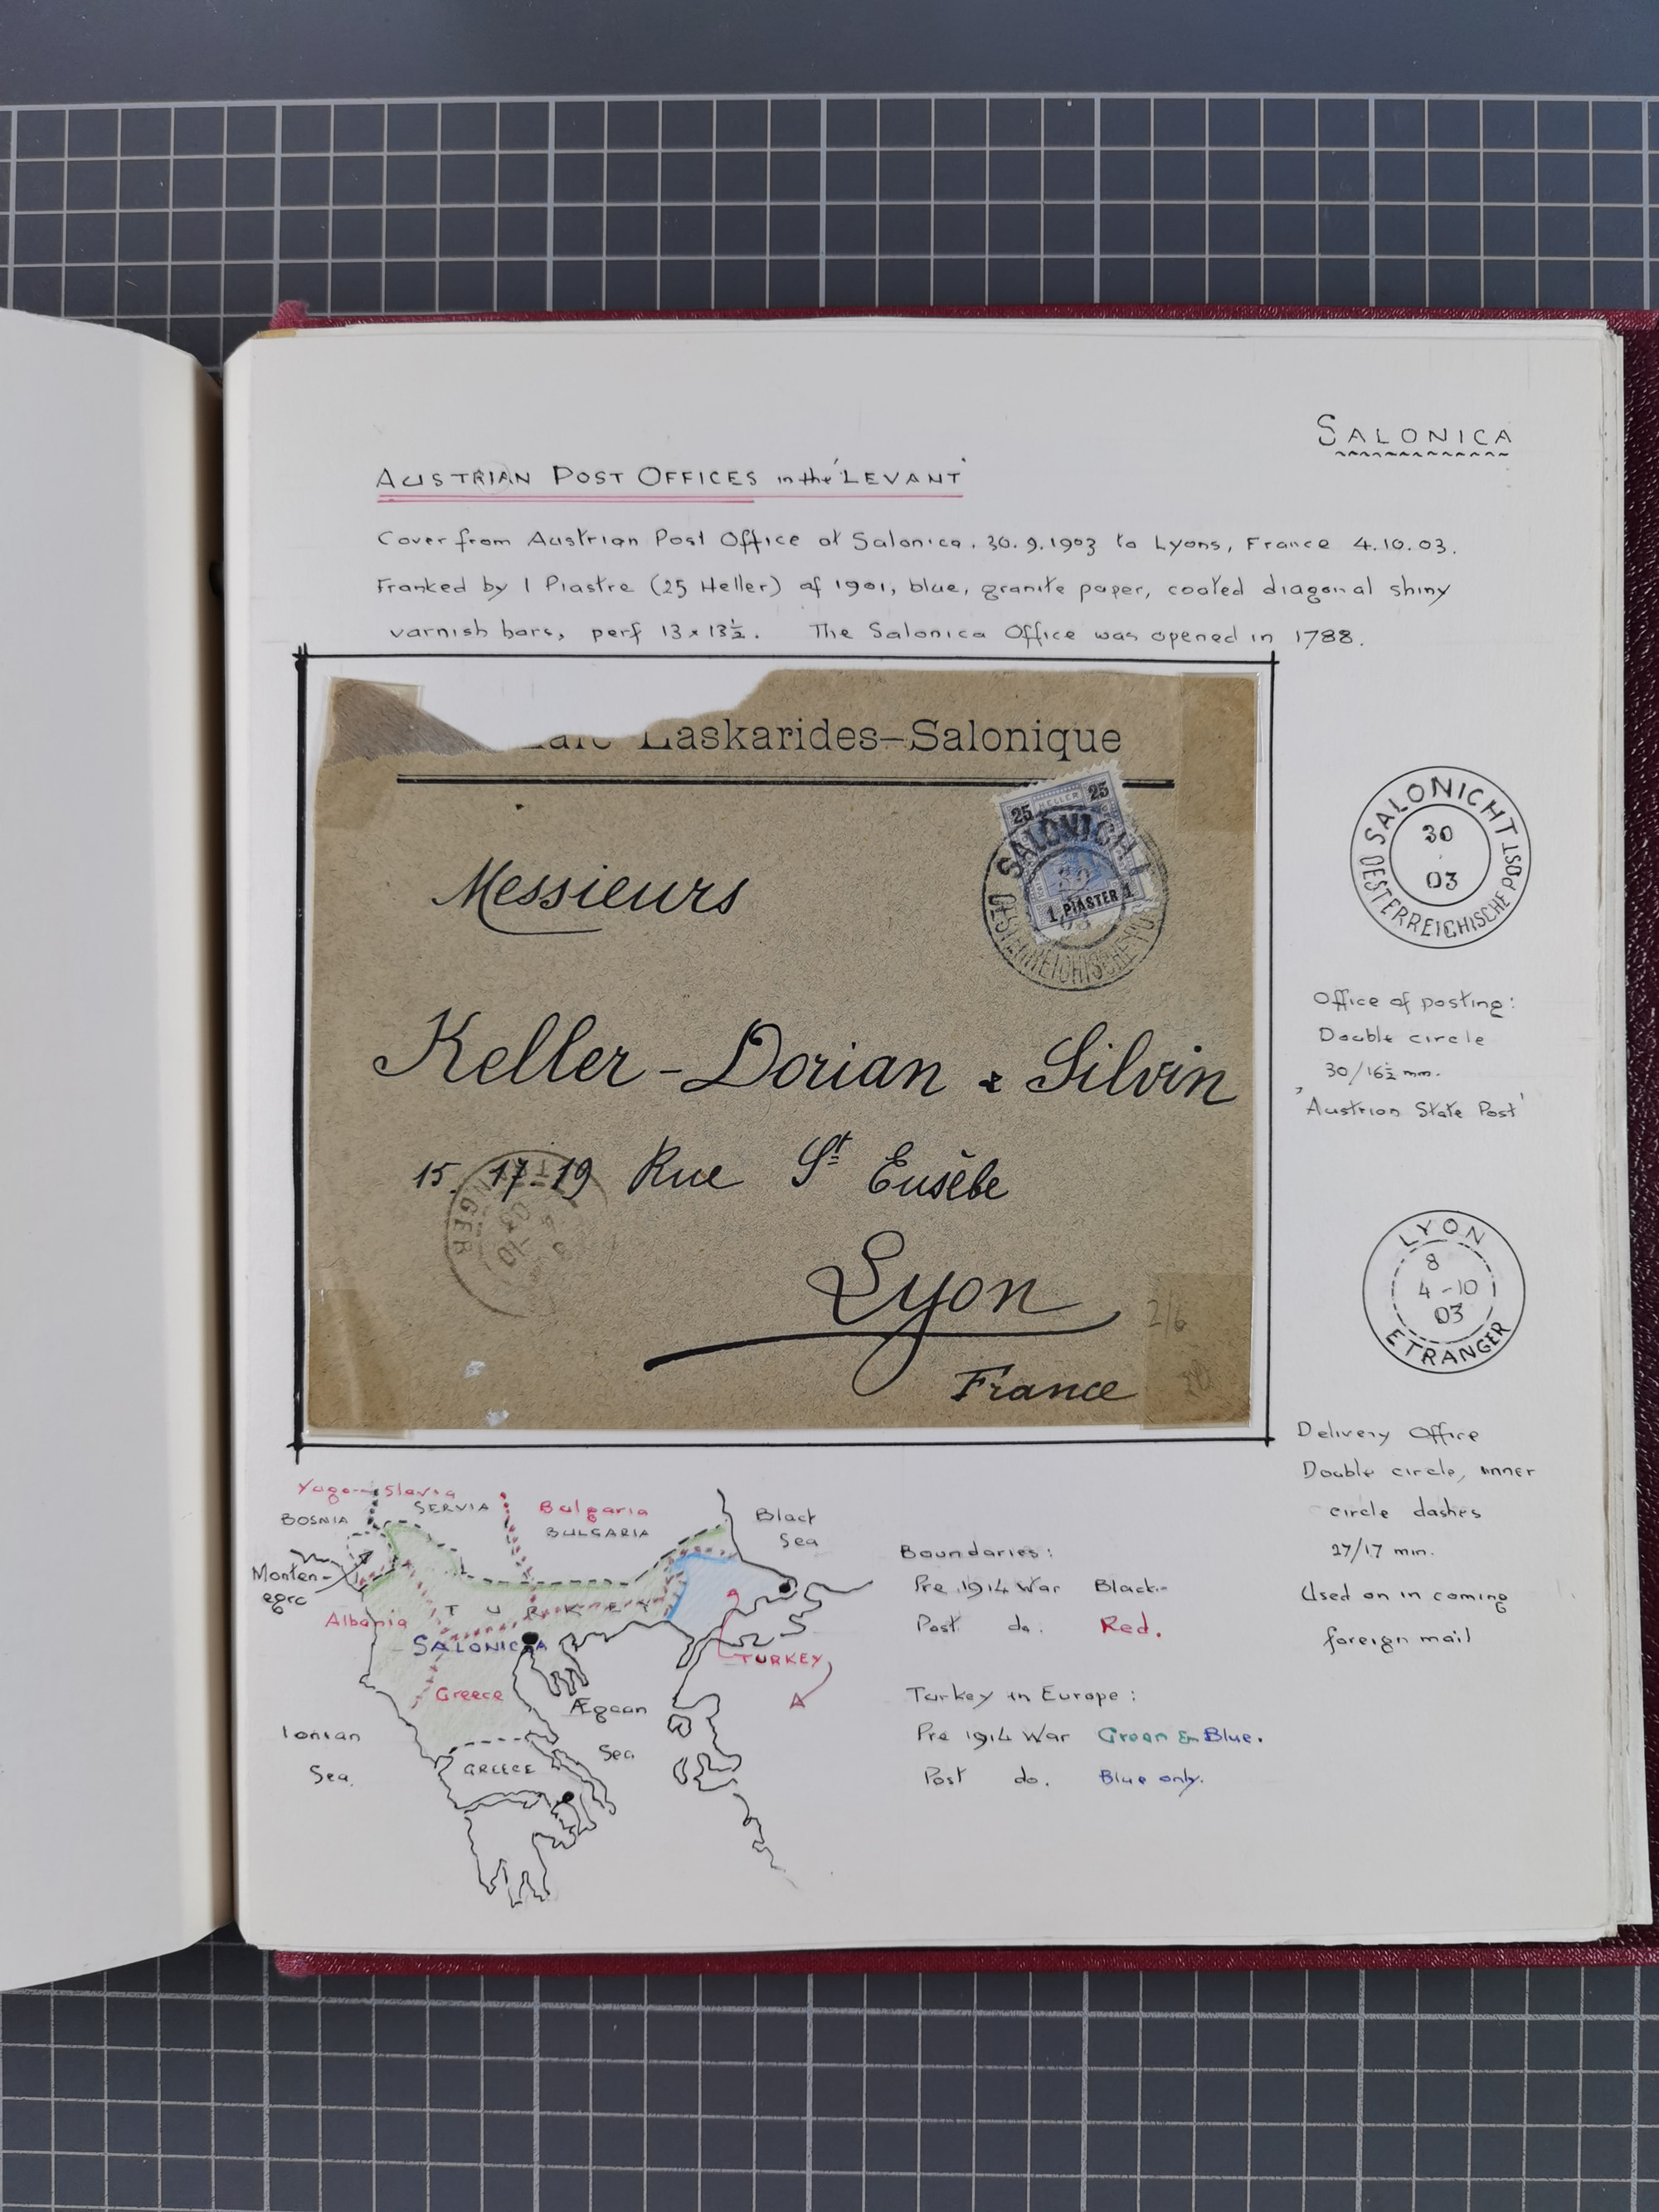 SALONICA
AUSTRIAN POST OFFICES in the 'LEVANT'
Cover from Austrian Post Office at Salonica. 30.9.1903 to Lyons, France 4.10.03.
Franked by 1 Piastre (25 Heller) of 1901, blue, granite paper, coated diagonal shiny
varnish bars, perf 13 x 13½. The Salonica Office was opened in 1788.
Laskarides–Salonique
25 HELLER 25
1 PIASTER 1
Messieurs
Keller-Dorian & Silvin
15-17-19 Rue St Eusèbe
Lyon
France
2/6
SALONICHI
30
03
OESTERREICHISCHE POST
Office of posting:
Double circle
30/16½ mm.
'Austrian State Post'
LYON
8
4-10
03
ETRANGER
Delivery Office
Double circle, inner
circle dashes
27/17 mm.
Used on in coming
foreign mail
Yugo-Slavia
SERVIA
BOSNIA
Bulgaria
BULGARIA
Black
Sea
Monten-
egro
Albania
TURKEY
SALONICA
TURKEY
Greece
Ægean
Sea
Ionian
Sea.
GREECE
Boundaries:
Pre 1914 War Black-
Post do. Red.
Turkey in Europe:
Pre 1914 War Green & Blue.
Post do. Blue only.